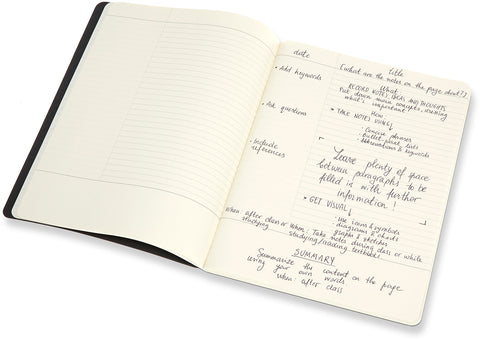 date title
[what are the notes on the page about?]
• Add keywords
What
RECORD NOTES, IDEAS AND THOUGHTS
Put down main concepts, stressing
what's important
• Ask questions
How
• TAKE NOTES USING
- Concise phrases
- Bullet point lists
- Abbreviations & keywords
• Include
references
Leave plenty of space
between paragraphs to be
filled in with further
information!
• GET VISUAL!
- Use icons & symbols
diagrams & charts
graphs & sketches
When after class or when Take notes during class or while
studying studying/reading textbooks!
SUMMARY
Summarise the content on the page
using your own words
when after class